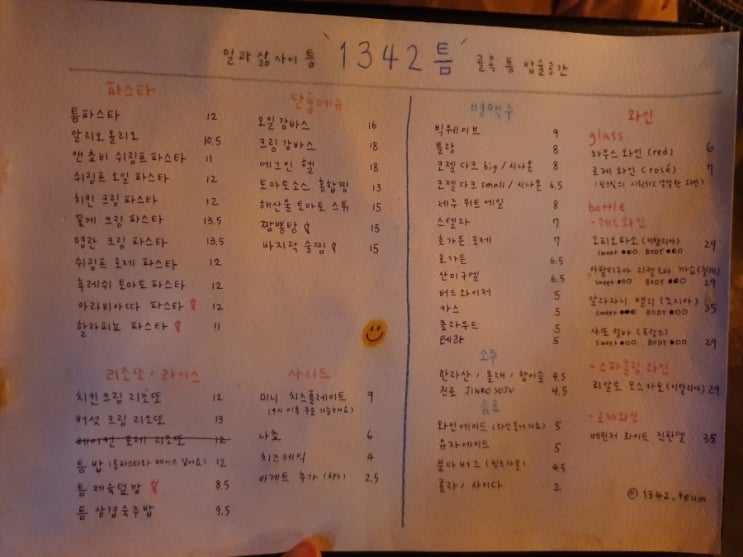 일과 삶 사이 틈 '1342틈' 골목 틈 밥술공간
파스타
틈파스타 12
알리오 올리오 10.5
앤초비 쉬림프 파스타 11
쉬림프 오일 파스타 12
치킨 크림 파스타 12
꽃게 크림 파스타 13.5
명란 크림 파스타 13.5
쉬림프 로제 파스타 12
후레쉬 토마토 파스타 12
아라비아따 파스타 12
할라피뇽 파스타 11
리조또 / 라이스
치킨 크림 리조또 12
버섯 크림 리조또 13
베이컨 로제 리조또 12
틈 밥 (틈파스타와 베이스 같아요) 12
틈 제육덮밥 8.5
틈 삼겹숙주밥 9.5
단품메뉴
오일 감바스 16
크림 감바스 18
에그인 헬 18
토마토소스 홍합찜 13
해산물 토마토 스튜 15
짬뽕탕 15
바지락 술찜 15
사이드
미니 치즈플레이트 9
(9시 이후 주문 가능해요)
나쵸 6
치즈케익 4
바게트 추가 (6ps) 2.5
병맥주
빅웨이브 9
블랑 8
코젤 다크 big / 시나몬 8
코젤 다크 small / 시나몬 6.5
제주 위트 에일 8
스텔라 7
호가든 로제 7
호가든 6.5
산미구엘 6.5
버드와이저 5
카스 5
클라우드 5
테라 5
소주
한라산 / 올래 / 참이슬 4.5
진로 JINRO SOJU 4.5
음료
와인에이드 (와인들어가요) 5
유자에이드 5
분다버그 4.5
콜라 / 사이다 2
와인
glass
하우스 와인 (red) 6
로제 와인 (rosé) 7
bottle
- 레드와인
도피오파소 (이탈리아) 29
sweet ●○○ BODY ●●○
아팔타구아 리젤브바 까쇼 (칠레)
sweet ●○○ BODY ●●○ 29
알라자니 밸리 (조지아) 35
sweet ●●○ BODY ●○○
샤또 딸바 (프랑스)
sweet ●○○ BODY ●●○ 29
- 스파클링 와인
리알토 모스카토 (이탈리아) 29
- 로제와인
베린저 화이트 진판델 35
@1342.teum